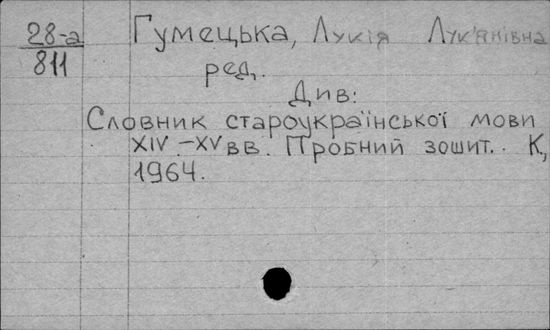 28-а
811
Гумецька, Лукія Лук'янівна
ред.
Див:
Словник староукраїнської мови
XIV-XV вв. Пробний зошит. К,
1964.